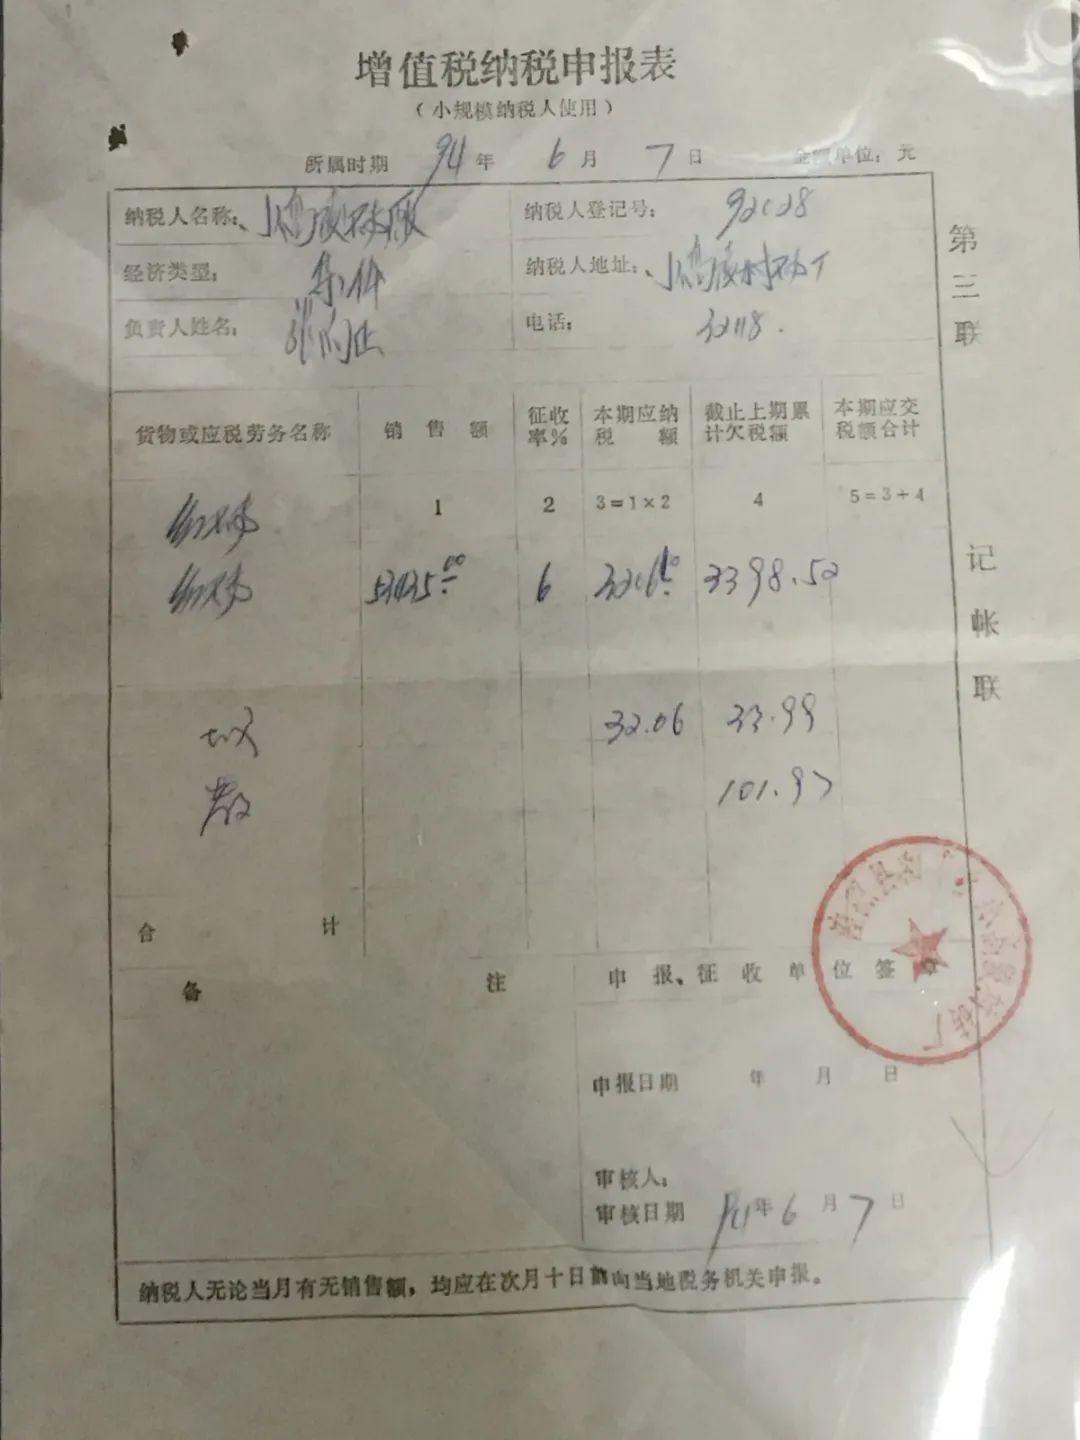 增值税纳税申报表
（小规模纳税人使用）
所属时期 94年 6月 7日 金额单位：元
纳税人名称： 纳税人登记号： 92028
经济类型： 集体 纳税人地址：
负责人姓名： 电话： 32118.
货物或应税劳务名称 销售额 征收率% 本期应纳税额 截止上期累计欠税额 本期应交税额合计
1 2 3=1×2 4 5=3+4
红砖
红砖 53435.00 6 3206.10 3398.52
城 32.06 33.99
教 101.97
合计
备注 申报、征收单位签章
申报日期 年 月 日
审核人：
审核日期 94年6月7日
纳税人无论当月有无销售额，均应在次月十日前向当地税务机关申报。
第三联
记帐联